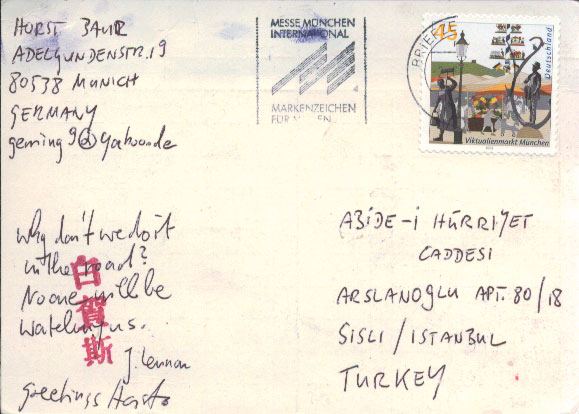 HORST BAUR
ADELGUNDENSTR.19
80538 MUNICH
GERMANY
geming9@yahoo.de
MESSE MÜNCHEN
INTERNATIONAL
MARKENZEICHEN
FÜR
BRIEF
45
Deutschland
Viktualienmarkt München
Why don't we do it
in the road?
No one will be
watching us.
J. Lennon
Greetings
白
賀
斯
ABiDE-i HÜRRiYET
CADDESI
ARSLANOGLU APT. 80/18
SISLI / ISTANBUL
TURKEY